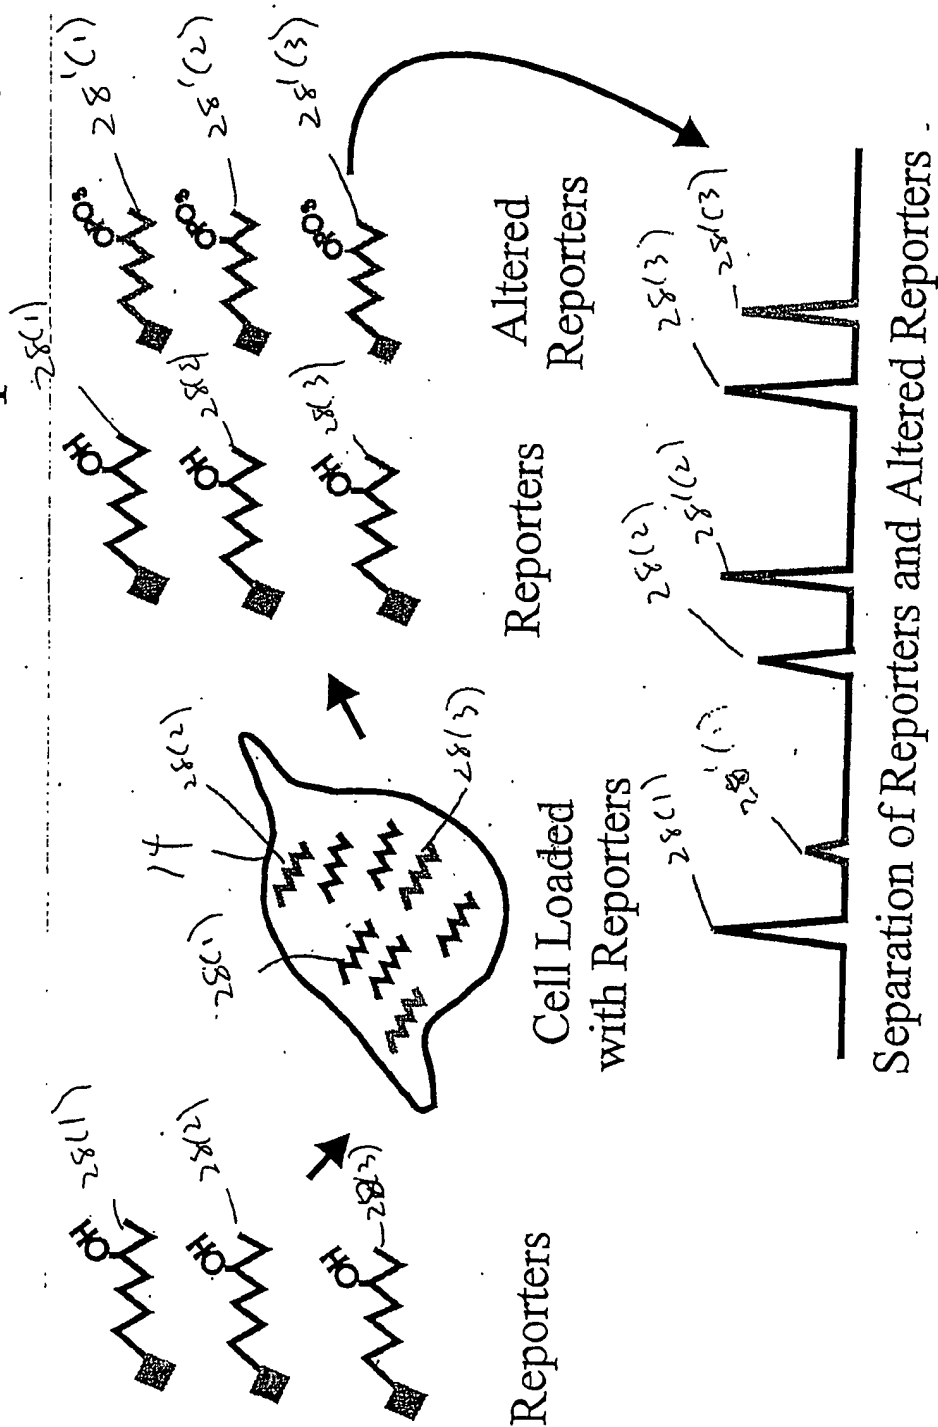 28(1)
HO
28(2)
HO
28(3)
HO
Reporters
28(1)
14
28(2)
28(3)
Cell Loaded
with Reporters
28(1)
HO
28(3)
HO
28(3)
HO
Reporters
28'(1)
OPO3
28'(2)
OPO3
28'(3)
OPO3
Altered
Reporters
28(1)
28'(1)
28(2)
28'(2)
28(3)
28'(3)
Separation of Reporters and Altered Reporters